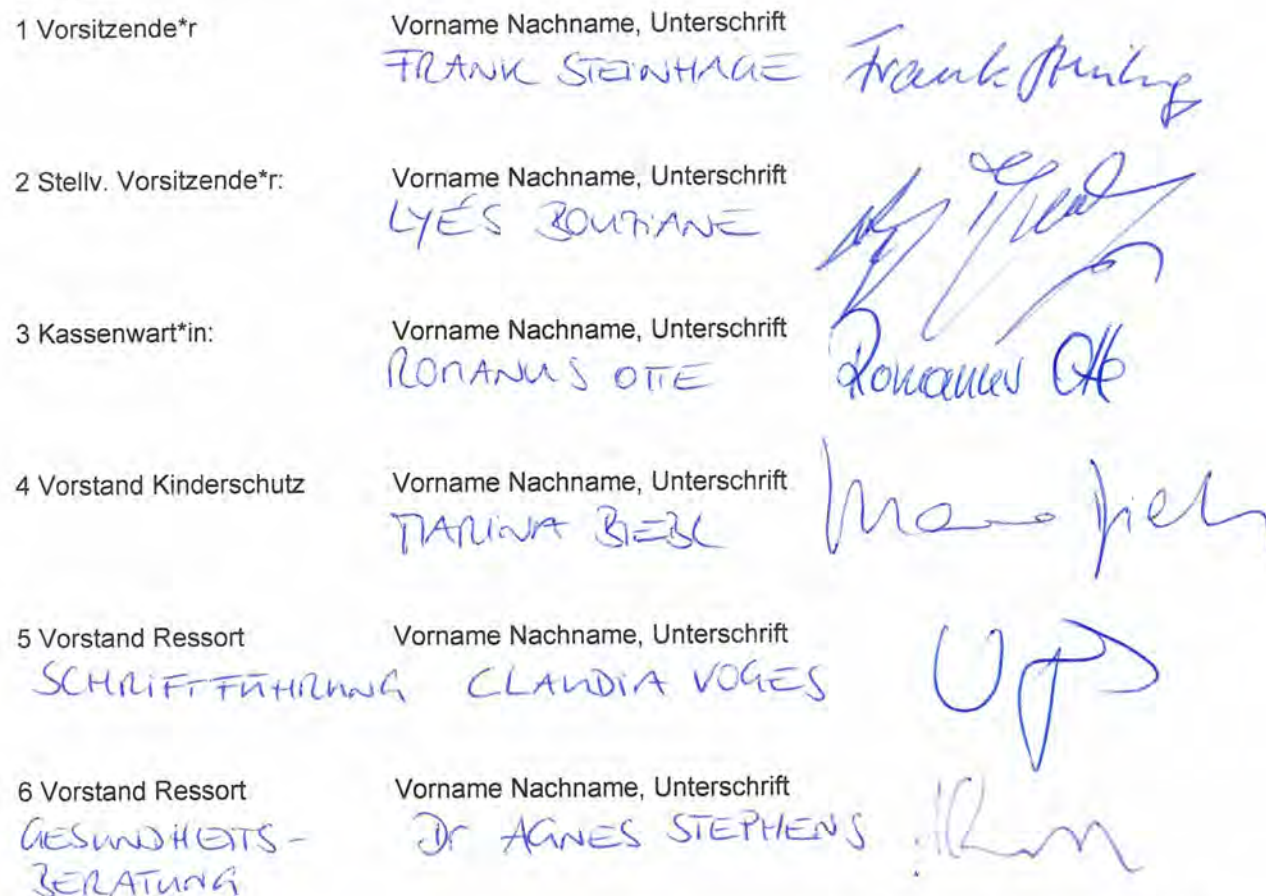 1 Vorsitzende*r Vorname Nachname, Unterschrift
FRANK STEINHAGE Frank
2 Stellv. Vorsitzende*r: Vorname Nachname, Unterschrift
LYÉS BOUZIANE
3 Kassenwart*in: Vorname Nachname, Unterschrift
ROMANUS OTTE Romanus Otte
4 Vorstand Kinderschutz Vorname Nachname, Unterschrift
MARINA BIEBL
5 Vorstand Ressort Vorname Nachname, Unterschrift
SCHRIFTFÜHRUNG CLAUDIA VOGES
6 Vorstand Ressort Vorname Nachname, Unterschrift
GESUNDHEITS- Dr AGNES STEPHENS
BERATUNG